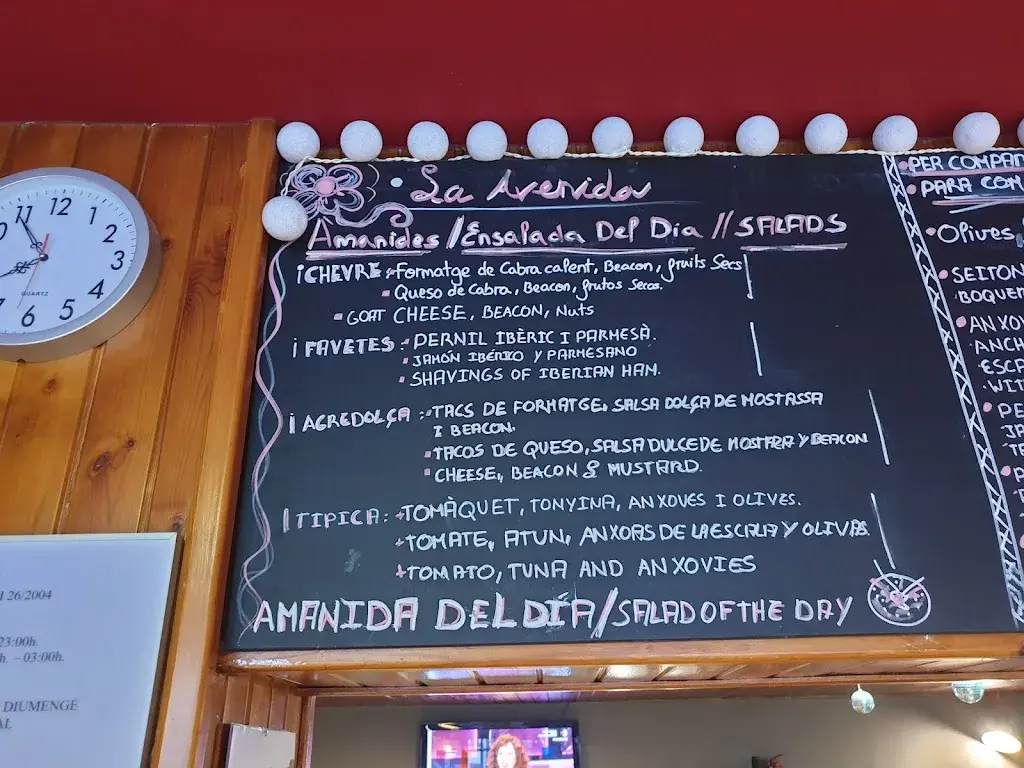 La Avenida
Amanides / Ensalada Del Dia // SALADS
¡CHEVRE: Formatge de Cabra calent, Beacon, fruits Secs
Queso de Cabra, Beacon, frutos Secos.
GOAT CHEESE, BEACON, Nuts
¡FAVETES: PERNIL IBÈRIC I PARMESÀ.
JAMÓN IBÉRICO Y PARMESANO
SHAVINGS OF IBERIAN HAM.
¡AGREDOLÇA: TACS DE FORMATGE, SALSA DOLÇA DE MOSTASSA
I BEACON.
TACOS DE QUESO, SALSA DULCE DE MOSTAZA Y BEACON
CHEESE, BEACON & MUSTARD.
TIPICA: TOMÀQUET, TONYINA, ANXOVES I OLIVES.
TOMATE, ATUN, ANXOAS DE LA ESCALA Y OLIVAS.
TOMATO, TUNA AND ANXOVIES
AMANIDA DEL DÍA / SALAD OF THE DAY
PER COMPAN
PARA COM
Olives
SEITON
BOQUER
ANXOV
ANCH
ESCA
WIT
PE
JA
12
1
2
3
4
5
6
7
11
QUARTZ
26/2004
23:00h.
h. – 03:00h.
DIUMENGE
AL